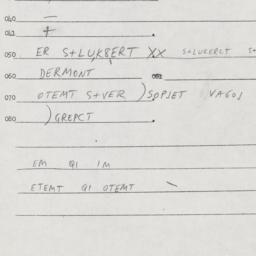 040 —
042 +
050 ER S+LUKBERT XX S+LUKERCT S+
060 DERMONT
070 OTEMT S+VER )SOPJET VAGOJ
080 )GREPCT
EM QI IM
ETEMT QI OTEMT